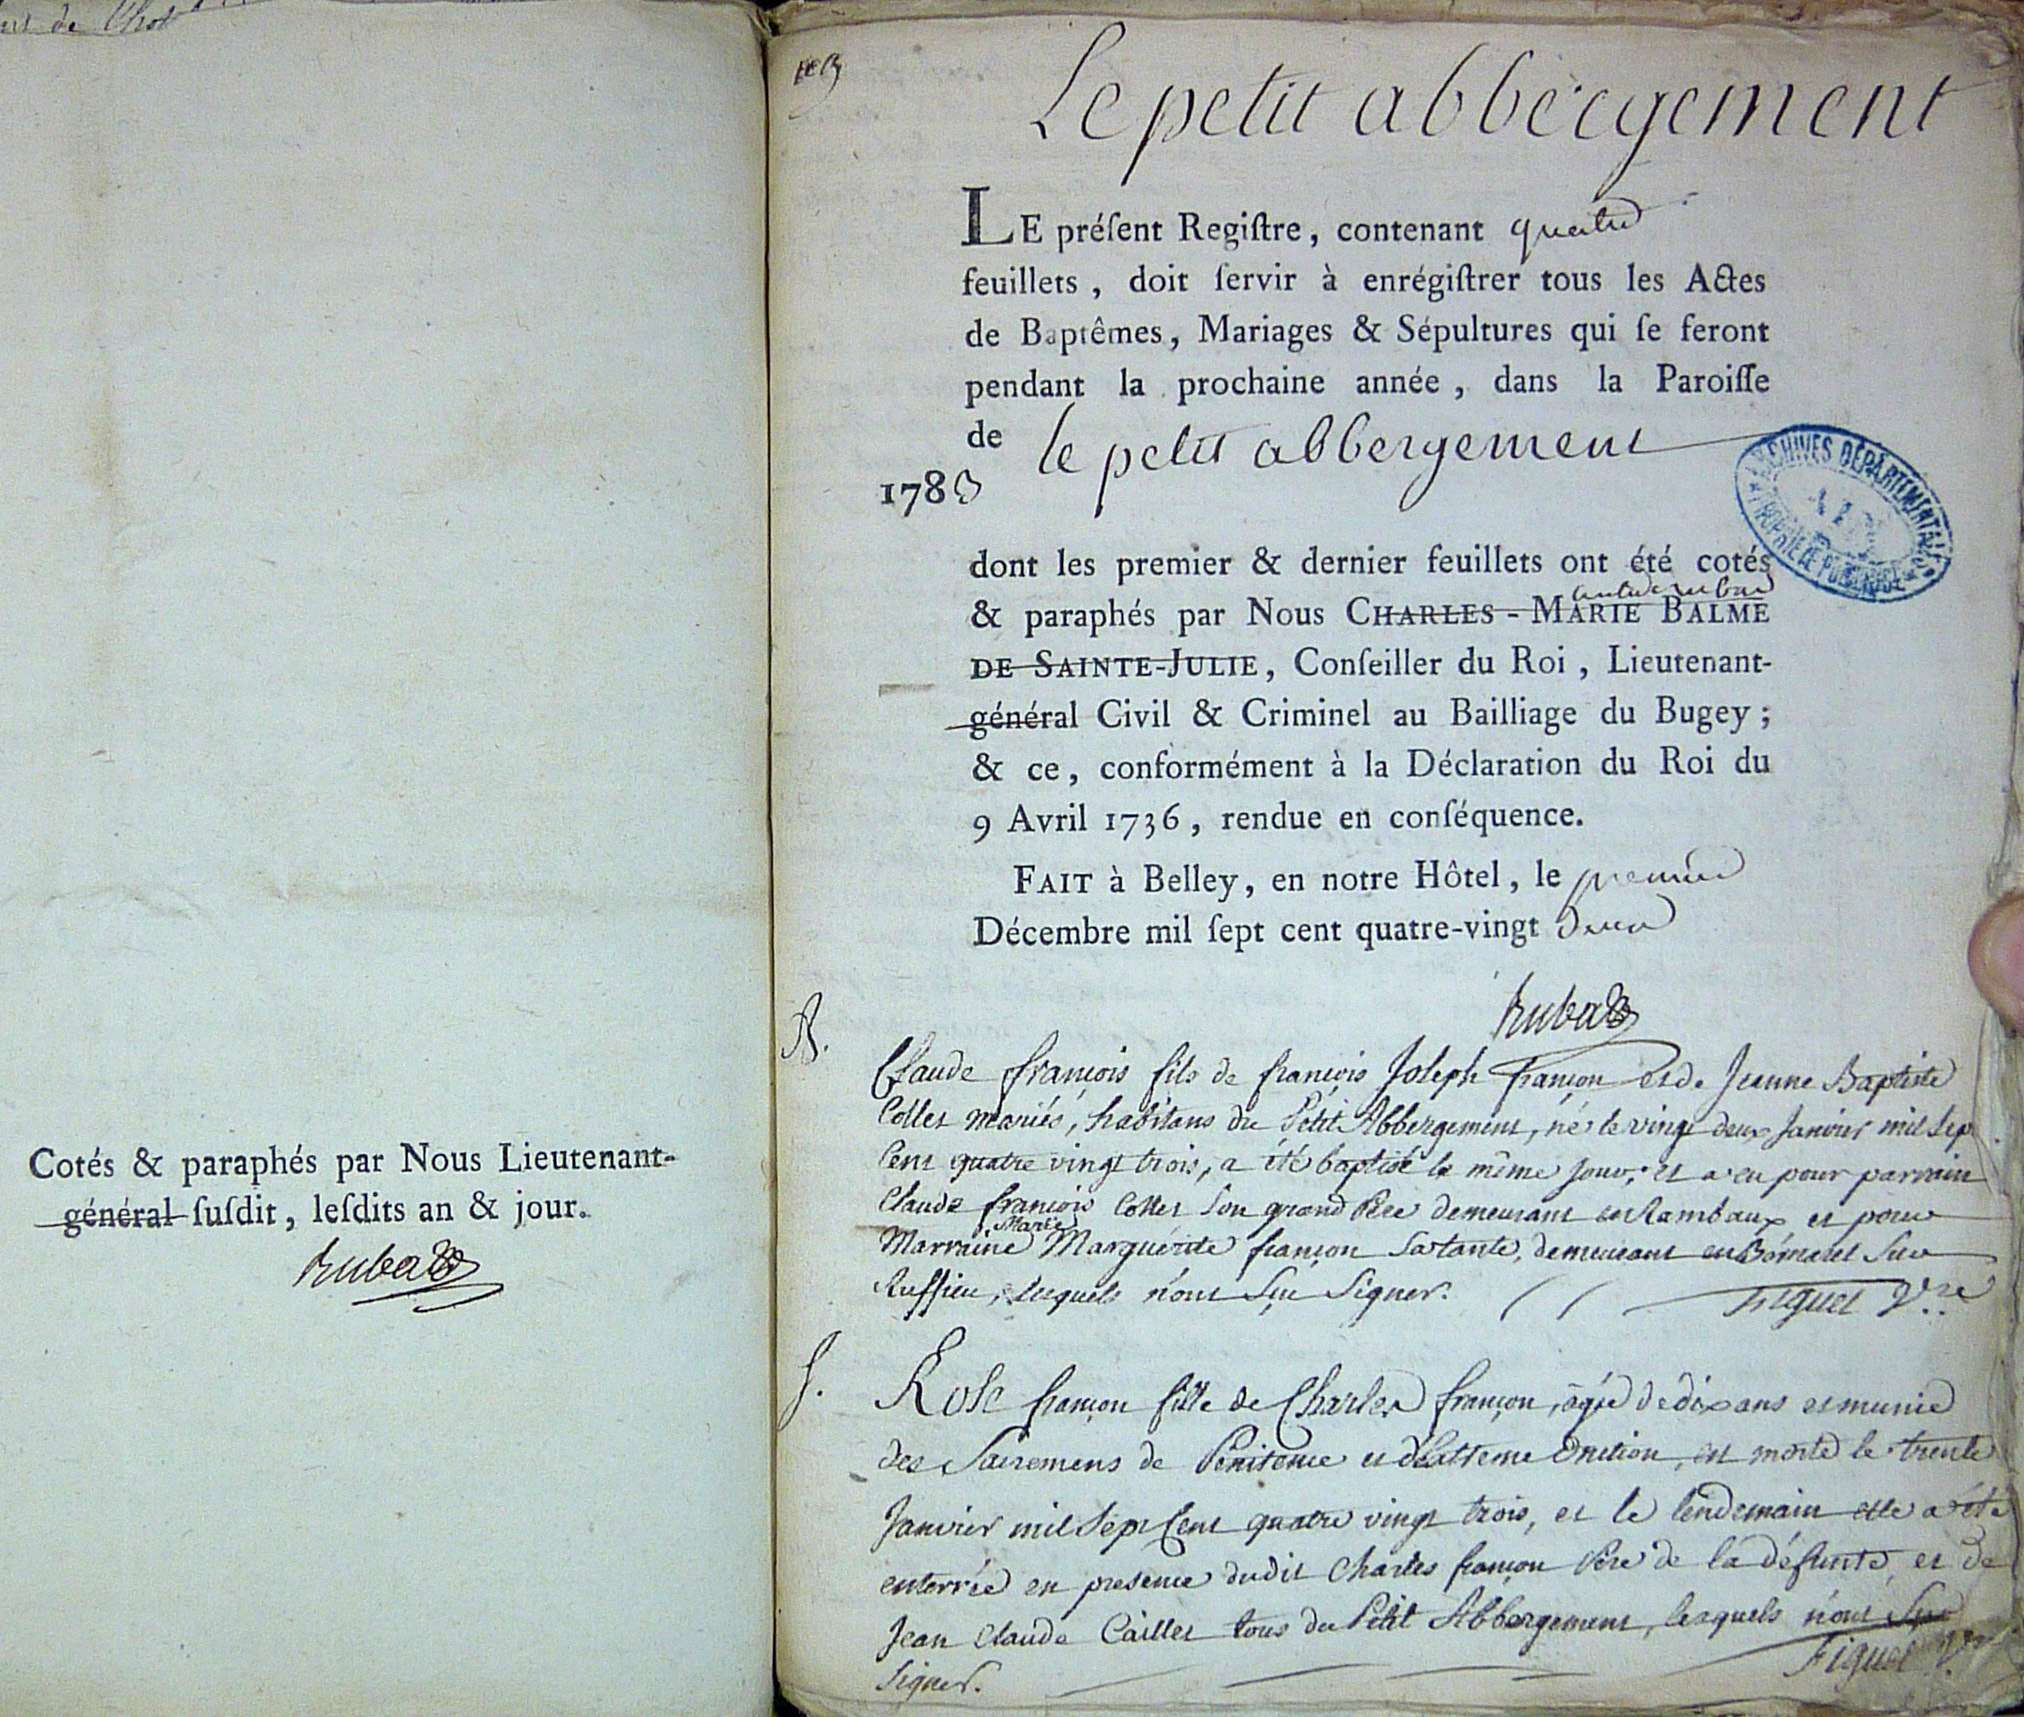 de Chot
Cotés & paraphés par Nous Lieutenant-
général susdit, lesdits an & jour.
Rubat
Le petit abbergement
LE préſent Regiſtre, contenant quatre
feuillets, doit ſervir à enrégiſtrer tous les Actes
de Baptêmes, Mariages & Sépultures qui ſe feront
pendant la prochaine année, dans la Paroiſſe
de le petit abbergement
1783
ARCHIVES DÉPARTEMENTALES
AIN
PROPRIÉTÉ PUBLIQUE
dont les premier & dernier feuillets ont été cotés
& paraphés par Nous CHARLES-MARIE BALME
DE SAINTE-JULIE, Conſeiller du Roi, Lieutenant-
général Civil & Criminel au Bailliage du Bugey;
& ce, conformément à la Déclaration du Roi du
9 Avril 1736, rendue en conſéquence.
FAIT à Belley, en notre Hôtel, le premier
Décembre mil ſept cent quatre-vingt deux
Rubat
B.
Claude françois fils de françois Joseph françon et de Jeanne Baptiste
Collet mariés, habitans du Petit Abbergement, né le vingt deux Janvier mil sept
Cent quatre vingt trois, a été baptisé le même jour, et a eu pour parrain
Claude françois Collet son grand Père demeurant en Rambaux et pour
Marie
Marraine Marguérite françon sa tante, demeurant en sur
Ruffieu, lesquels n'ont sçu signer. Figuet Vre
S.
Rose françon fille de Charles françon, âgée de dix ans et munie
des Sacremens de Pénitence et d'extreme Onction, est morte le trente
Janvier mil sept Cent quatre vingt trois, et le lendemain elle a été
enterrée en presence dudit Charles françon Père de la défunte, et de
Jean Claude Caillet tous du Petit Abbergement, lesquels n'ont sçu
signer. Figuet Vre